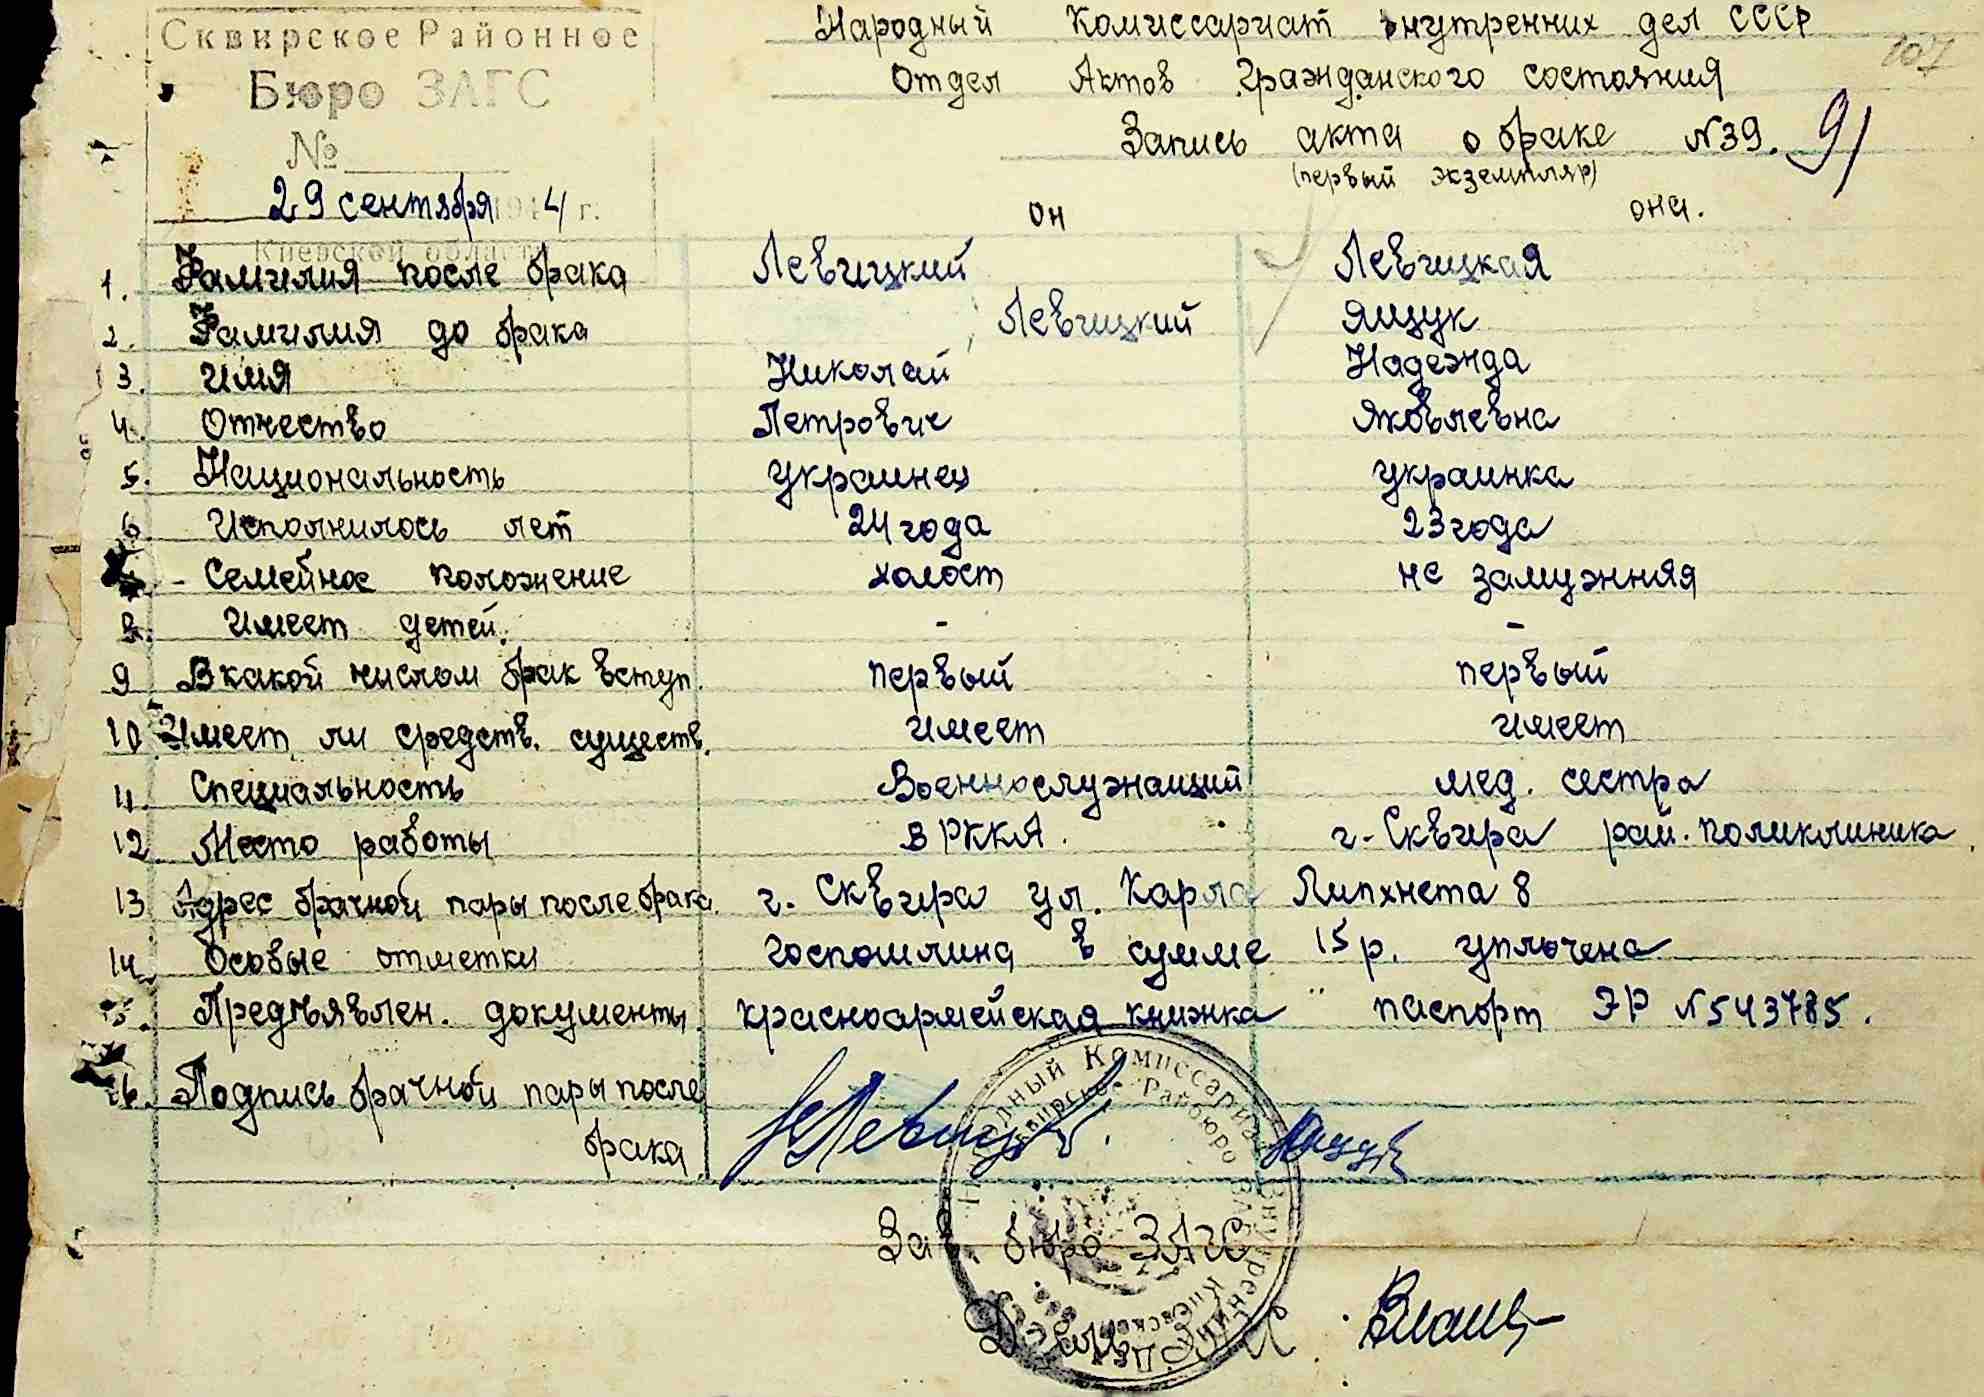 Сквирское Районное
Бюро ЗАГС
№
29 сентября 1944 г.
Киевской области
107
Народный Комиссариат внутренних дел СССР
Отдел Актов Гражданского состояния
Запись акта о браке №39. 91
(первый экземпляр)
он она.
1. Фамилия после брака Левицкий Левицкая
2. Фамилия до брака Левицкий Ящук
3. Имя Николай Надежда
4. Отчество Петрович Яковлевна
5. Национальность украинец украинка
6. Исполнилось лет 24 года 23 года
- Семейное положение холост не замужняя
8. Имеет детей. - -
9 В какой числом брак вступ. первый первый
10 Имеет ли средств. существ. имеет имеет
11. Специальность Военнослужащий мед. сестра
12 Место работы в РККА. г. Сквира рай. поликлиника.
13 Адрес брачной пары после брака. г. Сквира ул. Карла Липхнета 8
14 Особые отметки госпошлина в сумме 15 р. уплочена
15. Предъявлен. документы. красноармейская книжка " паспорт ЭР №543785.
16. Подпись брачной пары после
брака НЛевицкий Ящук
Зав. бюро ЗАГС
Народный Комиссариат Внутренних Дел
Сквирское Райбюро ЗАГС
Киевской